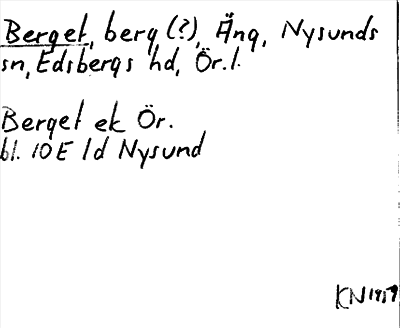 Berget, berg (?), Äng, Nysunds
sn, Edsbergs hd, Ör. l.
Berget ek Ör.
bl. 10 E 1d Nysund
KN